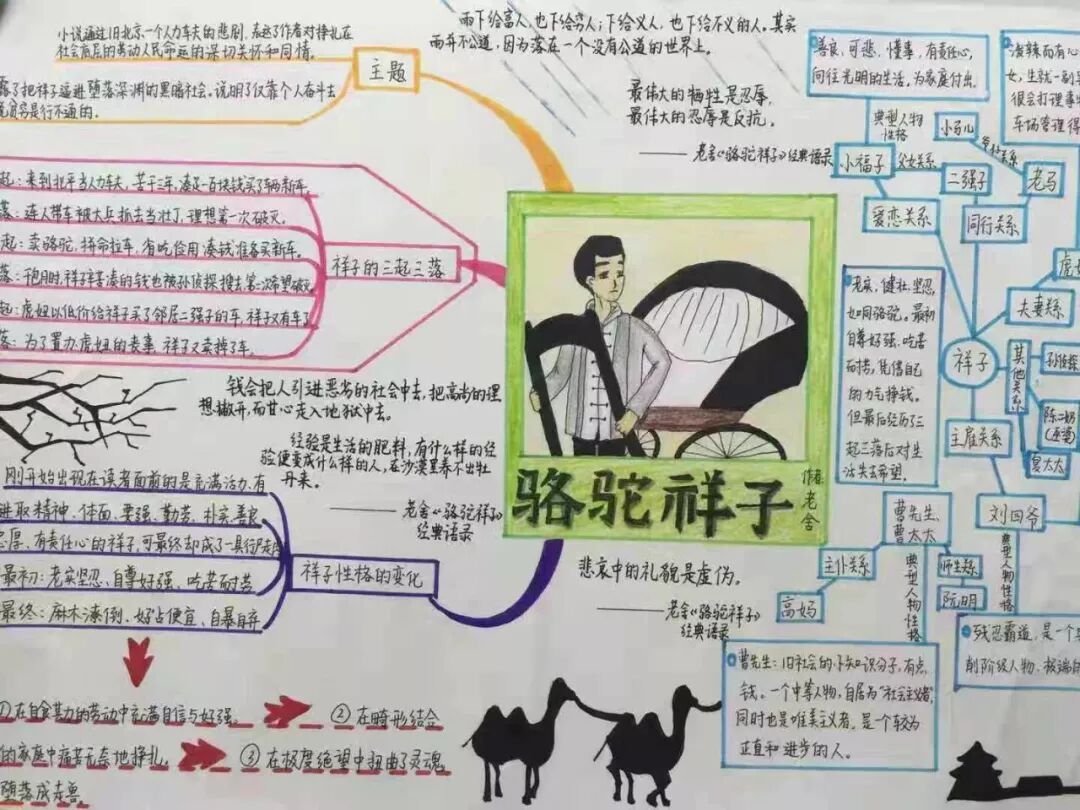 小说通过旧北京一个人力车夫的悲剧,表达了作者对挣扎在
社会底层的劳动人民命运的深切关怀和同情。
露了把祥子逼进堕落深渊的黑暗社会。说明了仅靠个人奋斗去
贫穷是行不通的。
主题
雨下给富人,也下给穷人;下给义人,也下给不义的人。其实
雨并不公道,因为落在一个没有公道的世界上。
最伟大的牺牲是忍辱,
最伟大的忍辱是反抗。
——老舍《骆驼祥子》经典语录
起:来到北平当人力车夫,苦干三年,凑足一百块钱买了辆新车。
落:连人带车被大兵抓去当壮丁,理想第一次破灭。
起:卖骆驼,拼命拉车,省吃俭用凑钱准备买新车。
落:祥子辛苦凑的钱也被孙侦探搜去,第二次希望破灭。
起:虎妞以低价给祥子买了邻居二强子的车,祥子又有车了
落:为了置办虎妞的丧事,祥子又卖掉了车。
祥子的三起三落
钱会把人引进恶劣的社会中去,把高尚的理
想撇开,而甘心走入地狱中去。
经验是生活的肥料,有什么样的经
验便变成什么样的人,在沙漠里养不出牡
丹来。
——老舍《骆驼祥子》
经典语录
刚开始出现在读者面前的是充满活力,有
进取精神、体面、要强、勤劳、朴实、善良
忠厚、有责任心的祥子,可最终却成了一具行尸走肉
最初:老实坚忍、自尊好强、吃苦耐劳
最终:麻木潦倒、好占便宜、自暴自弃
祥子性格的变化
①在自食其力的劳动中充满自信与好强。
②在畸形结合
的家庭中痛苦无奈地挣扎。
③在极度绝望中扭曲了灵魂
堕落成走兽。
骆驼祥子
作者:老舍
悲哀中的礼貌是虚伪。
——老舍《骆驼祥子》
经典语录
善良,可悲,懂事,有责任心,
向往光明的生活,为家庭付出。
泼辣而有心
女,生就一副
很会打理事
车场管理得
典型人物
性格
小福子
父女关系
二强子
小马儿
老马
爱恋关系
同行关系
老实,健壮,坚忍,
如同骆驼。最初
自尊好强,吃苦
耐劳,凭借自己
的力气挣钱。
但最后经历三
起三落后对生
活失去希望。
祥子
夫妻关系
虎
其他关系
孙侦探
陈二奶
夏太太
主雇关系
曹先生、
曹太太
刘四爷
主仆关系
高妈
典型人物性格
师生关系
阮明
典型人物性格
残忍霸道,是一个
削阶级人物,极端的
曹先生:旧社会的小知识分子,有点
钱。一个中等人物,自居为“社会主义者”,
同时也是唯美主义者。是一个较为
正直和进步的人。